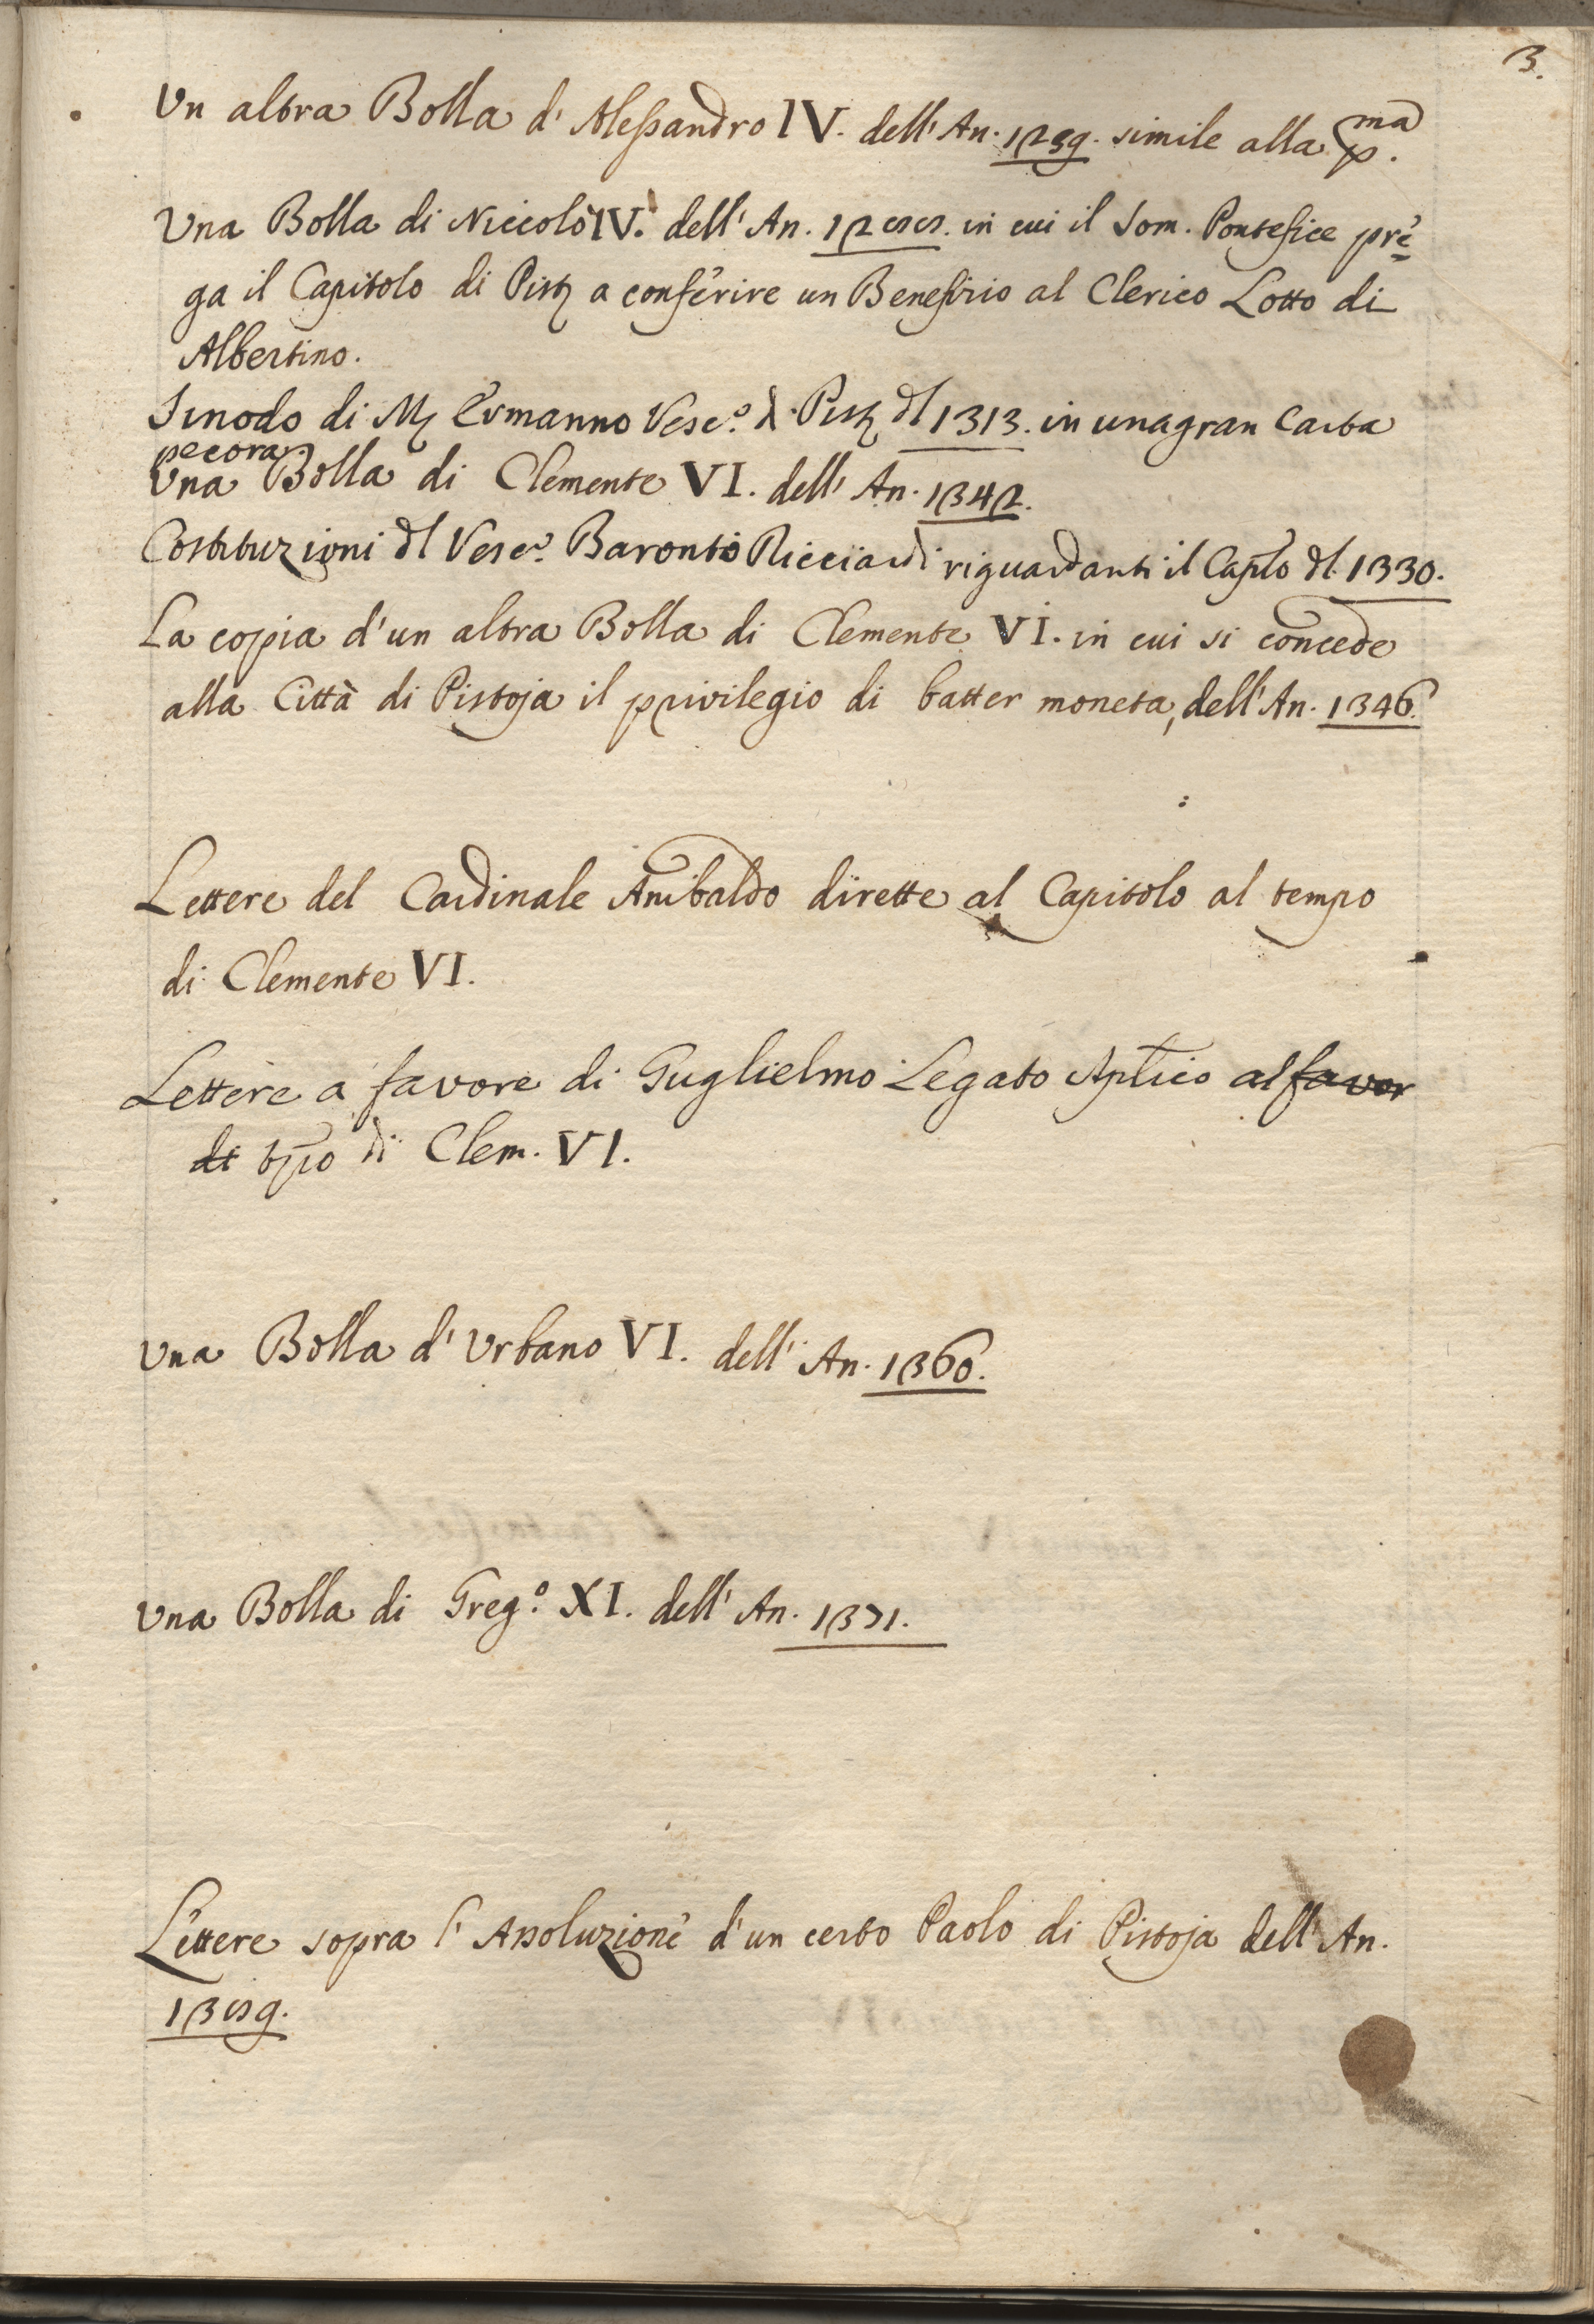 3.
Un altra Bolla d' Alessandro IV. dell' An. 1259. simile alla p.ma
Una Bolla di Niccolò IV. dell' An. 1288. in cui il Som. Pontefice pre
ga il Capitolo di Pist. a conferire un Benefizio al Clerico Lotto di
Albertino.
Sinodo di M. Ermanno Vesc.o d. Pist. dl 1313. in una gran Carta
pecora.
Una Bolla di Clemente VI. dell' An. 1342.
Costituzioni dl Vesc.o Baronto Ricciardi riguardanti il Caplo dl. 1330.
La copia d'un altra Bolla di Clemente VI. in cui si concede
alla Città di Pistoja il privilegio di batter moneta, dell' An. 1346.
Lettere del Cardinale Anibaldo dirette al Capitolo al tempo
di Clemente VI.
Lettere a favore di Guglielmo Legato Aplico al favor
di tpo di Clem. VI.
Una Bolla d' Urbano VI. dell' An. 1360.
Una Bolla di Greg.o XI. dell' An. 1371.
Lettere sopra l' Assoluzione d'un certo Paolo di Pistoja dell' An.
1389.